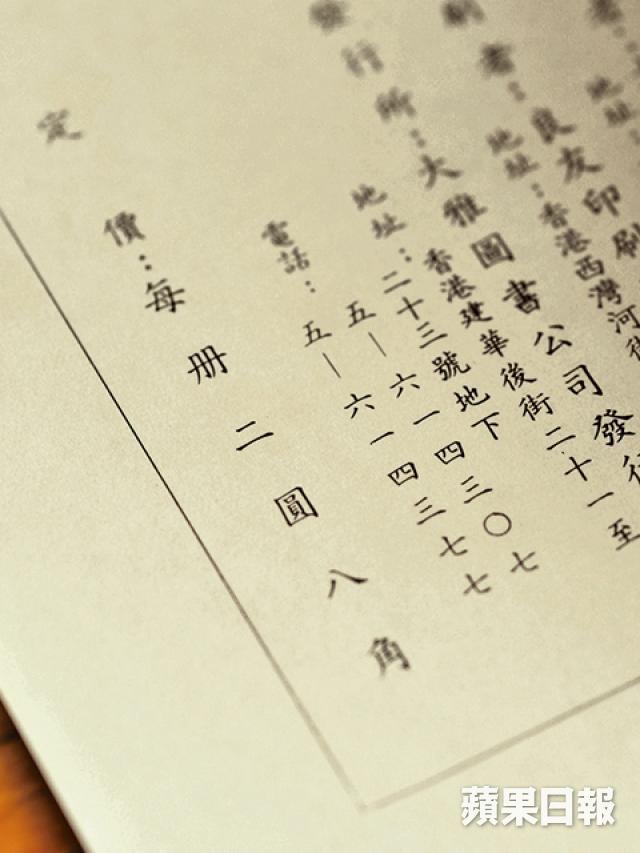 者：
地址：
刷者：良友印刷
地址：香港西灣河街
發行所：大雅圖書公司發行
地址：香港建華後街二十一至
二十三號地下
電話：五—六一四三〇七
五—六一四三七七
定價：每册二圓八角
蘋果日報